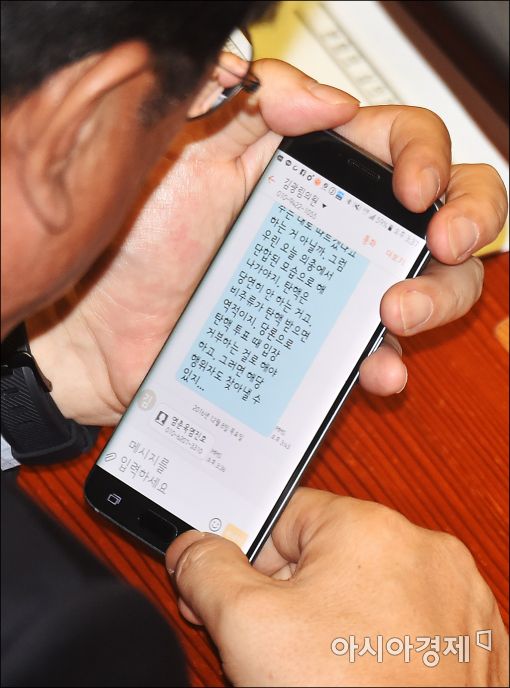 김광림의원
하는 거 아닐까, 그럼
우린 오늘 의총에서
단합된 모습으로 해
나가야지, 탄핵은
당연히 안 하는 거고,
비주류가 탄핵 받으면
역적이지, 당론으로
탄핵 투표 때 입장
거부하는 걸로 해야
하고, 그러면 해당
행위자도 찾아낼 수
있지...
MMS
2016년 12월 6일 화요일
김
MMS
메시지를
입력하세요
통화
더보기
아시아경제